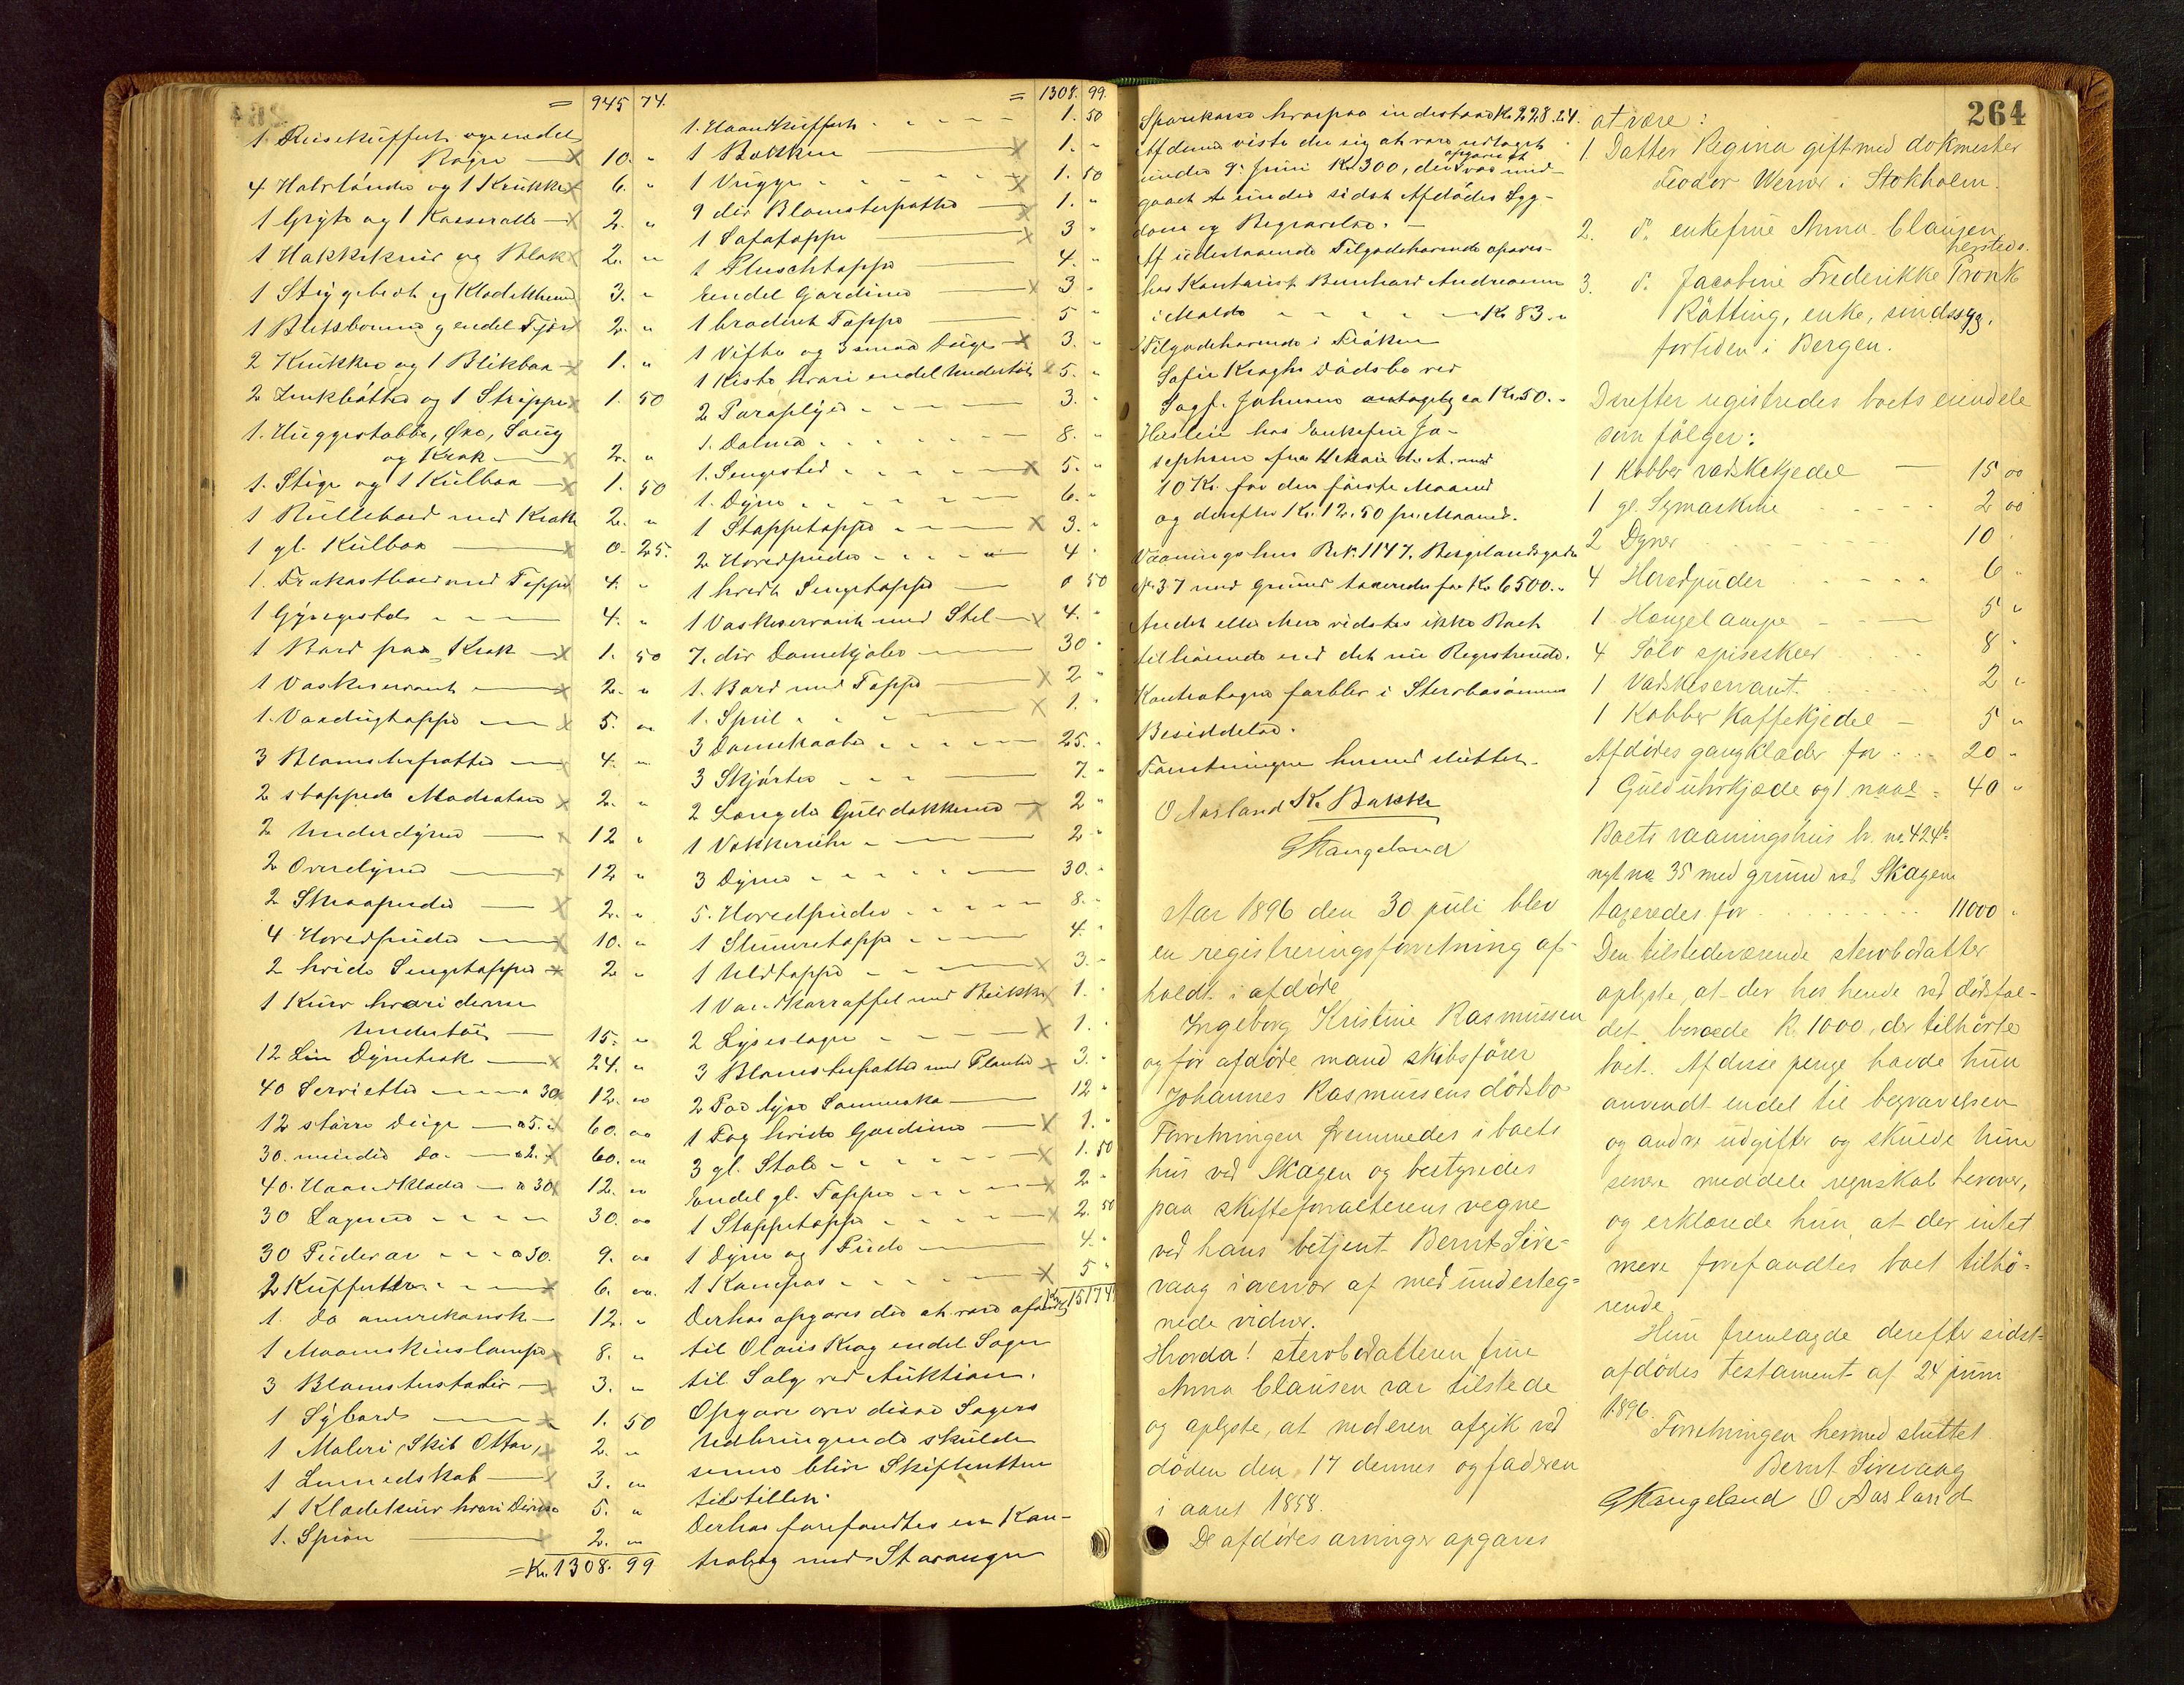 = 945 74.
1 Reisekuffert og endel
Bøger — 10. "
4 Halvtønder og 1 Krukke 6. "
1 Gryte og 1 Kasserolle — 2. "
1 Hakkekniv og Blok 2. "
1 og 3. "
1 og endel 2. "
2 Krukker og 1 Blikbox — 1. "
2 Zinkbøtter og 1 Strippe 1. 50
1. Huggestabbe, Øxe, Saug
og Krak — 2. "
1. Stige og 1 Kulbox — 1. 50
1 Rullebord med Krak 2. "
1 gl. Kulbox — 0. 25.
1. Frokostbord med Teppe 4. "
1 Gyngestol - - - 4. "
1 Bord paa Krak — 1. 50
1 Vaskeservant — 2. "
1. Voxdugteppe — 5. "
3 Blomsterpotter — 4. "
2 stoppede Madratser 2. "
2 Underdyner — 12 "
2 Overdyner — 12 "
2 Skraapuder — 2. "
4 Hovedpuder — 10. "
2 hvide Sengetepper 2 "
1 Kurv hvori
Undertøi — 15. "
12 Lin Dyne — 24. "
40 Servietter — a 30 12. "
12 større Duge — a 5. 60. "
30. mindre do. — a 2. 60. "
40. Haandklæder — a 30 12. "
30 Lagener - - - 30. "
30 Pudevar - - - a 30. 9. "
2 Kufferter - - 6. "
1. do amerikansk — 12. "
1 Maaneskinslampe 8. "
3 Blomsterstativ — 3. "
1 Sybord — 1. 50
1 Maleri, Skib Otter, 2. "
1 — 3. "
1 Klædekurv hvori Diverse 5. "
1. Speil — 2. "
= Kr. 1308. 99
= 1308. 99.
1. Haandkuffert - - - 1. 50
1 Bækken 1. "
1 Vugge - - - - 1. 50
9 div Blomsterpotter — 1. "
1 Sofateppe — 3 "
1 Pluschteppe — 4. "
Endel Gardiner — 3 "
1 broderet Teppe — 5 "
1 Vifte og 3 smaa Duge 3. "
1 Kiste hvori endel Undertøi 5. "
2 Paraplyer - - - 3. "
1. - - - 8. "
1. Sengested - - - 5. "
1. Dyne - - - 6. "
1 Stoppeteppe - - - 3. "
2 Hovedpuder - - - 4 "
1 hvidt Sengeteppe — 0 50
1 Vaskeservant med Stel — 4. "
7. div Damekjoler — 30 "
1. Bord med Teppe — 2 "
1. Speil - - 1. "
3 Damekaaber - - - 25. "
3 Skjørter - - — 7. "
2 Længder — 2 "
1 Vækkeruhr - — 2 "
3 Dyner - - - 30. "
5. Hovedpuder - - - 8. "
1 Slumreteppe - - - 4. "
1 Uldteppe - - — 3. "
1 med 1. "
2 Lysestager - - — 1. "
3 Blomsterpotter med Planter 3. "
2 Par — 12 "
1 Fag hvide Gardiner — 1. "
3 gl. Stole - - - 1. 50
Endel gl. Tepper - - - 2 "
1 Stoppeteppe - - - 2. 50
1 Dyne og 1 Pude — 4. "
1 Kompas - - - 5 "
Derhos opgaves der at være afsendt
til Olaus Krag endel Sager
til Salg ved Auktion.
Opgave over disse Sagers
Udbringende skulde
senere blive Skifteretten
tilstillet.
Derhos forefandtes en Kon-
trabog med Stavanger
Sparekasse hvorpaa indestaar Kr. 228.24.
Af denne viste der sig at være udtaget
under 9. Juni Kr. 300, der opgaves at være med-
gaaet til sidst Afdødes Syg-
dom og Begravelse.
Af udestaaende Tilgodehavende opgaves
hos Kontorist Bernhard Andreassen
i Molde - - - - Kr 83. "
Tilgodehavende i Frøken
Sofie Kraghs Dødsbo ved
Sagf. Johnsen antagelig ca Kr. 50. "
Husleie hos Enkefru Jo-
sephsen fra d. A. med
10 Kr. for den første Maaned
og derefter Kr. 12.50 pr. Maaned.
Vaaningshus Br. No. 1147, Bergelandsgade
No. 37 med Grund taxeredes for Kr. 6500. "
Andet eller Mere vidstes ikke Boet
tilhørende end det nu Registrerede.
Kontrabogen forblev i Stervbosønnens
Besiddelse.
Forretningen hermed sluttet.
O Aasland K. Bakke
G Stangeland
Aar 1896 den 30 juli blev
en registreringsforretning af-
holdt i afdøde
Ingeborg Kristine Rasmussen
og før afdøde mand skibsfører
Johannes Rasmussens dødsbo
Forretningen fremmedes i boets
hus ved Skagen og bestyredes
paa skifteforvalterens vegne
ved hans betjent Bernt Sire-
vaag i overvær af medunderteg-
nede vidner.
Hvorda! stervbodatteren frue
Anna Clausen var tilstede
og oplyste, at moderen afgik ved
døden den 17 dennes og faderen
i aaret 1858.
De afdødes arvinger opgaves
264
at være:
1. Datter Regina gift med dokmester
Teodor Werner i Stokholm.
2. do. enkefrue Anna Clausen
hersteds.
3. do. Jacobine Frederikke Pronk
Røtting, enke, sindssyg,
fortiden i Bergen.
Derefter registredes boets eiendele
som følger:
1 Kobber vadskekjedel — 15 00
1 gl. Symaskine - - - 2 00
2 Dyner - - - 10 "
4 Hovedpuder - - - 6 "
1 Hængelampe - - - 5 "
4 Sølv spiseskeer 8 "
1 Vadskeservant. 2 "
1 Kobber Kaffekjedel — 5 "
Afdødes gangklæder for - - 20 "
1 Guld uhrkjæde og 1 naal - 40 "
Boets vaaningshus br. no. 424b
nyt no 35 med grund ved Skagen
taxeredes for - - - 11000 "
Den tilstedeværende stervbodatter
oplyste, at der hos hende ved dødsfal-
det beroede Kr. 1000, der tilhørte
boet. Af disse penge havde hun
anvendt endel til begravelsen
og andre udgifter og skulde hun
senere meddele regnskab herover,
og erklærede hun, at der intet
mere forefandtes boet tilhø-
rende.
Hun fremlagde derefter sidst-
afdødes testament af 24 juni
1896.
Forretningen hermed sluttet
Bernt Sirevaag
G Stangeland O Aasland